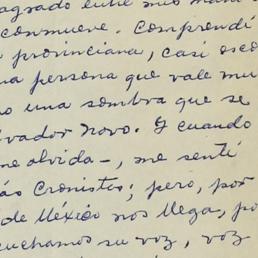 agrado entre sus man
conmueve. Comprendí
provinciana, casi esco
na persona que vale mu
o una sombra que se
lvador Novo. Y cuando
me olvida-, me sentí
ás Cronistas; pero, por
de México nos llega, po
cuchamos su voz, voz